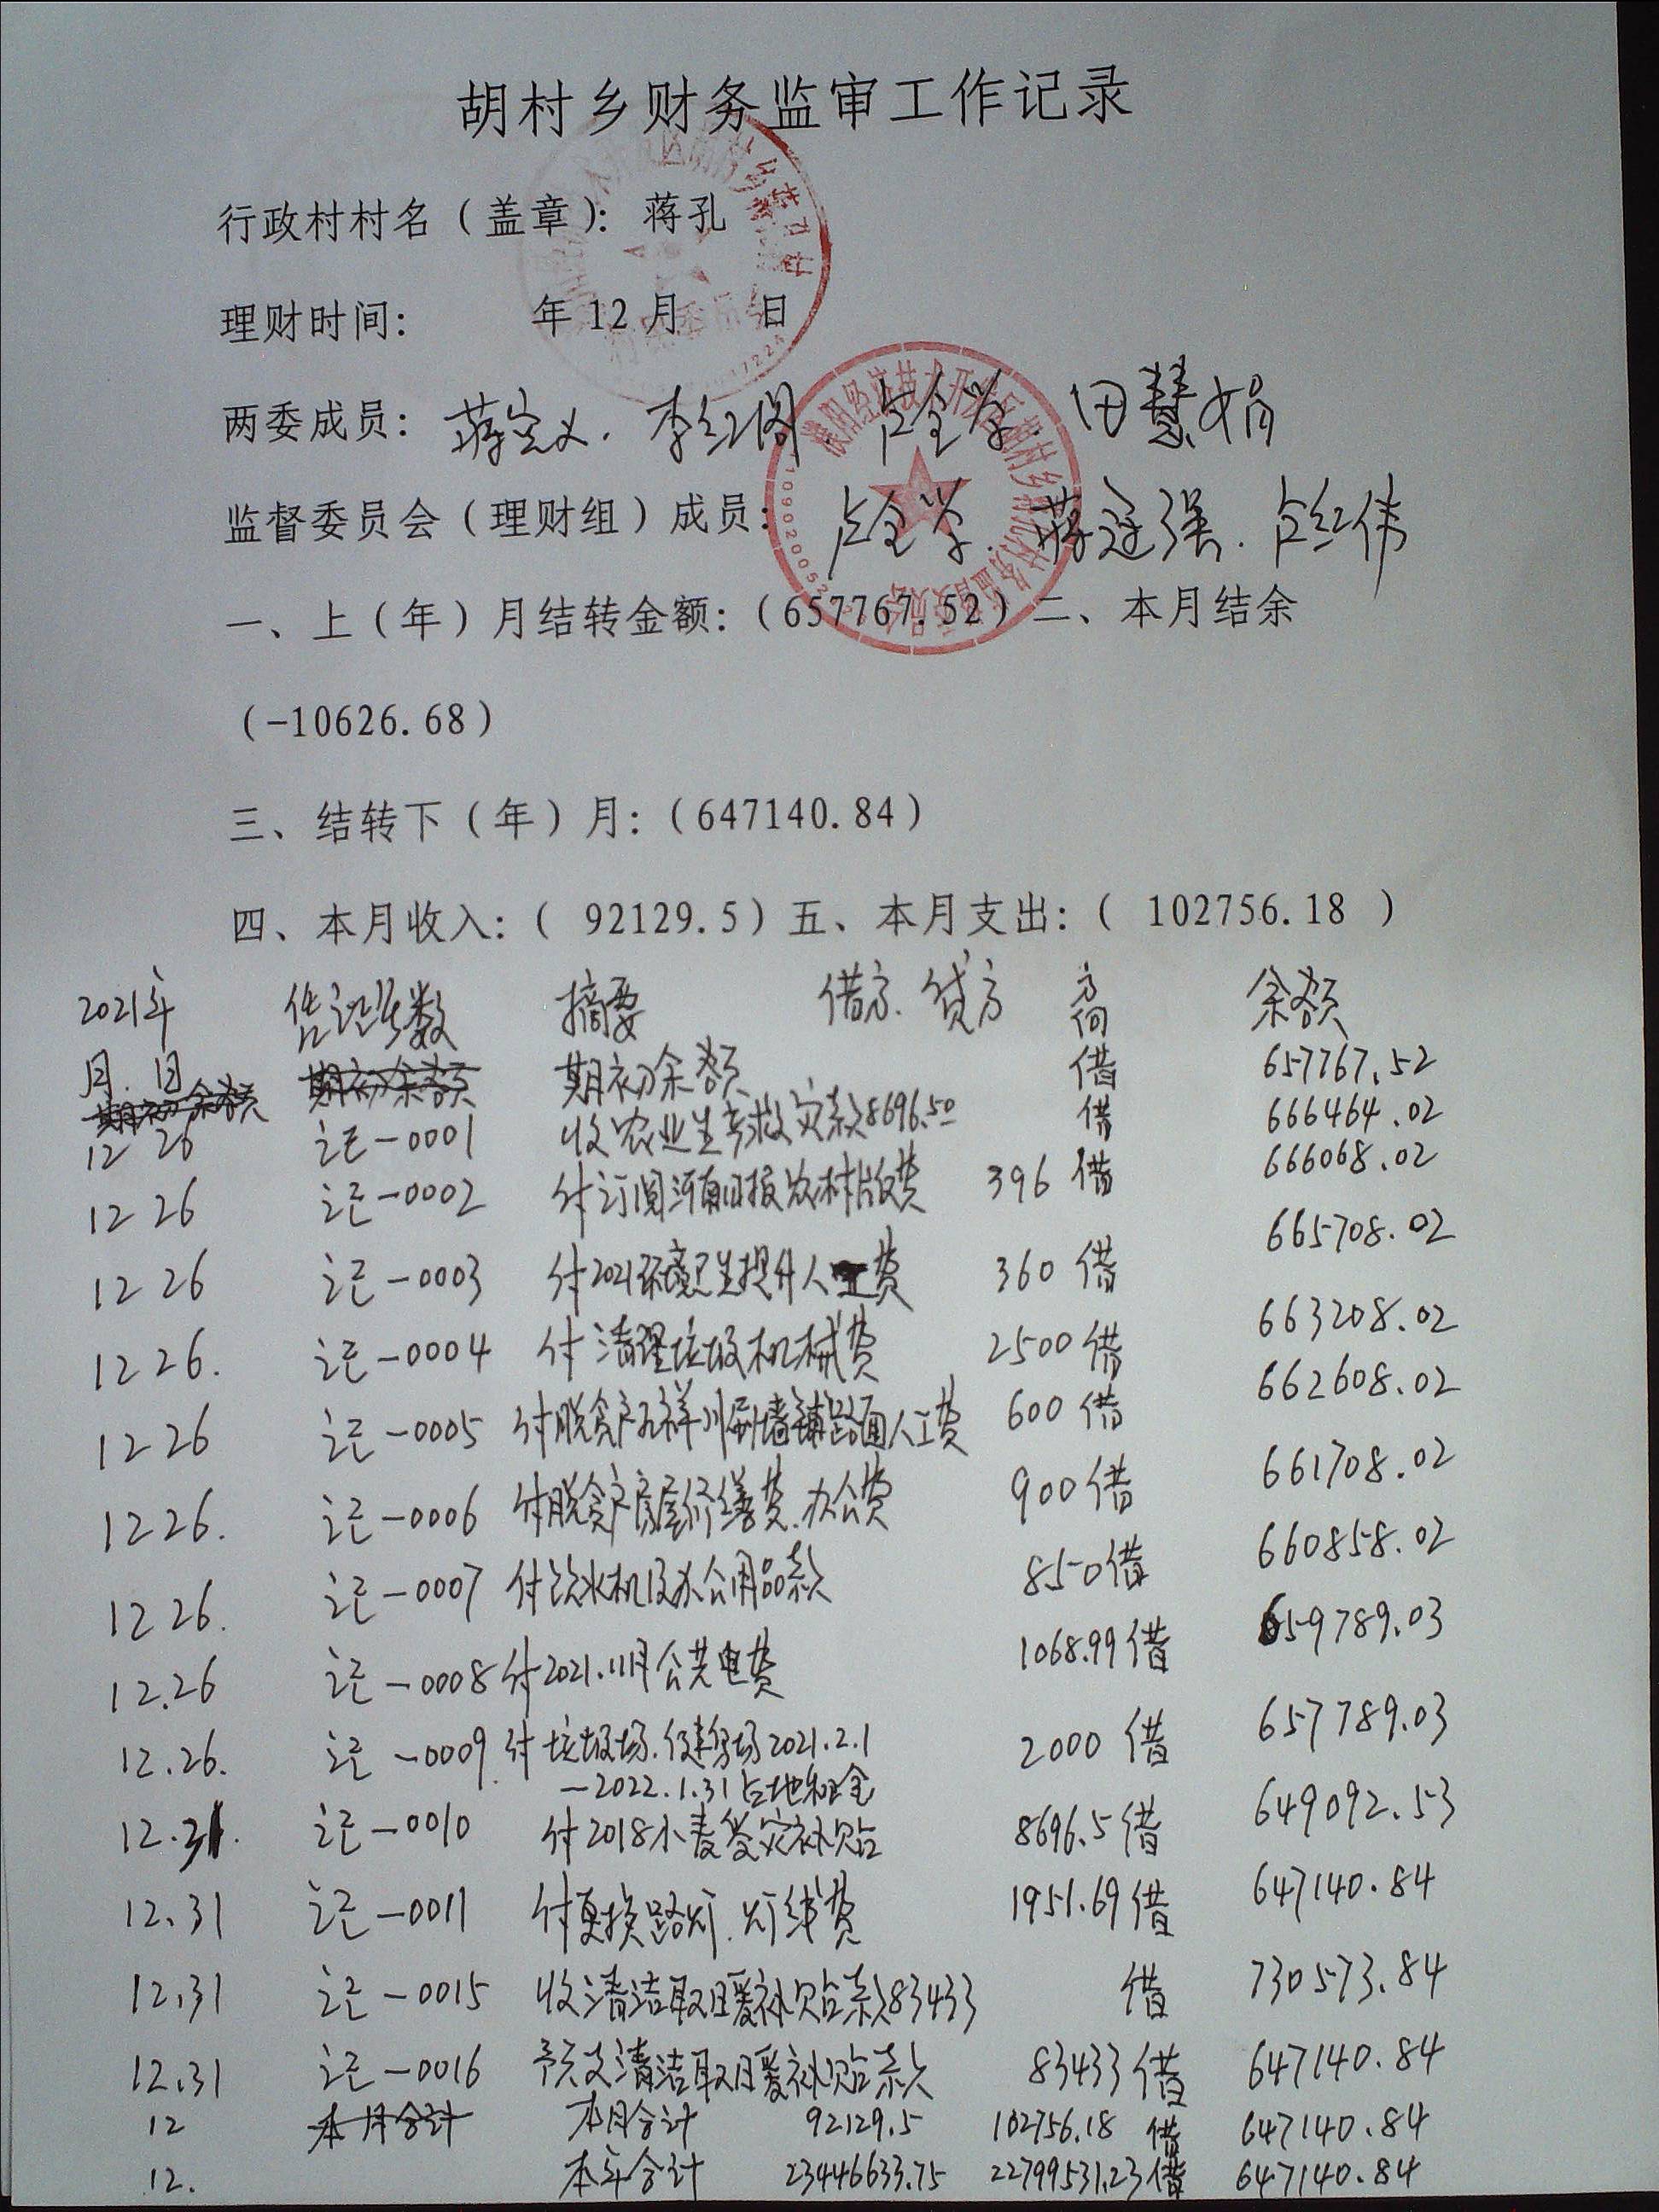 胡村乡财务监审工作记录
行政村村名（盖章）：蒋孔
理财时间： 年12月 日
两委成员：蒋定义．李红阁．卢全学．田慧娟
监督委员会（理财组）成员：卢全学．蒋廷强．卢红伟
一、上（年）月结转金额：（657767.52）二、本月结余
（-10626.68）
三、结转下（年）月：（647140.84）
四、本月收入：（ 92129.5）五、本月支出：（ 102756.18 ）
2021年 凭证号数 摘要 借方．贷方 方向 余额
月．日 期初余额 期初余额 借 657767.52
期初余额
12 26 记-0001 收农业生产救灾款8696.50 借 666464.02
12 26 记-0002 付订阅河南日报农村版费 396 借 666068.02
12 26 记-0003 付2021环境卫生提升人工费 360 借 665708.02
12 26. 记-0004 付清理垃圾机械费 2500 借 663208.02
12 26 记-0005 付脱贫户孔祥川刷墙铺路面人工费 600 借 662608.02
12 26. 记-0006 付脱贫户房屋修缮费．办公费 900 借 661708.02
12 26. 记-0007 付饮水机及办公用品款 850 借 660858.02
12.26 记-0008 付2021.11月公共电费 1068.99 借 659789.03
12.26. 记-0009. 付垃圾场．健身场2021.2.1 2000 借 657789.03
—2022.1.31占地租金
12.31. 记-0010 付2018小麦受灾补贴 8696.5 借 649092.53
12.31 记-0011 付更换路灯．灯线费 1951.69 借 647140.84
12.31 记-0015 收清洁取暖补贴款83433 借 730573.84
12.31 记-0016 预支清洁取暖补贴款 83433 借 647140.84
12 本月合计 本月合计 92129.5 102756.18 借 647140.84
12. 本年合计 23446633.75 22799531.23 借 647140.84